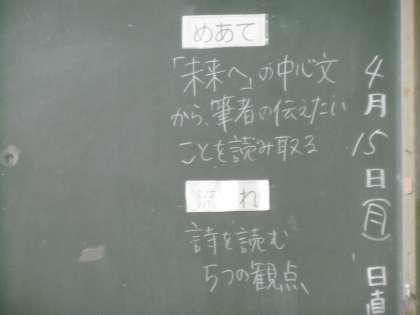 4月15日(月) 日直
めあて
「未来へ」の中心文
から、筆者の伝えたい
ことを読み取る
流れ
詩を読む
5つの観点